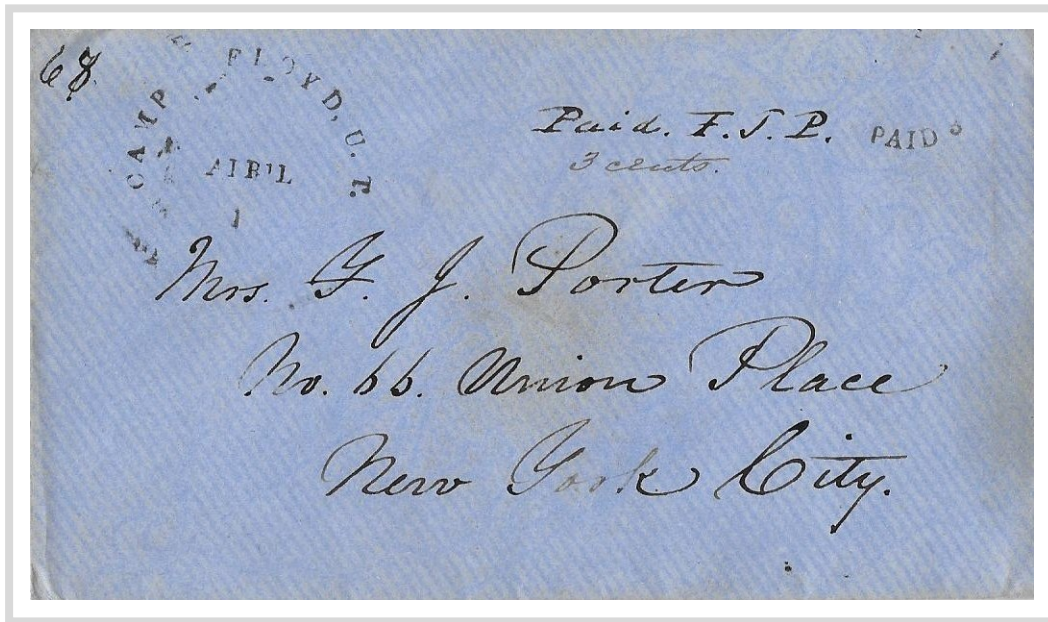 68.
CAMP FLOYD, U.T.
AIR'L
1
Paid. F. J. P.
3 cents.
PAID 3
Mrs. F. J. Porter
No. 66. Union Place
New York City.